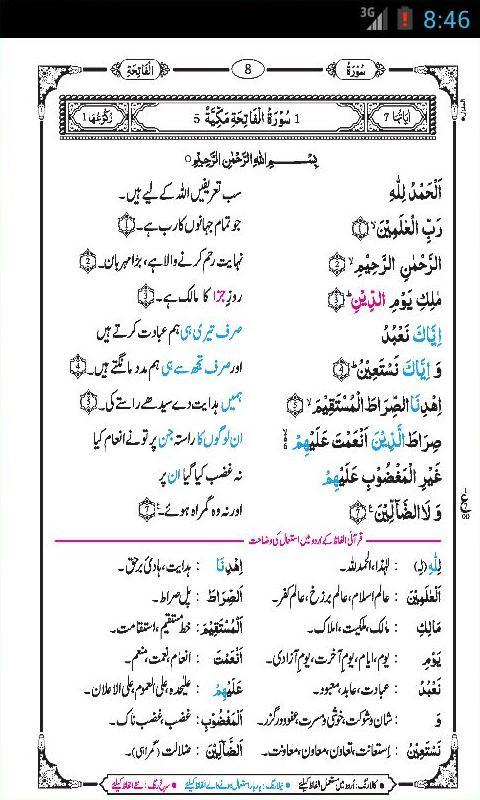 3G 8:46
سُوْرَةُ 8 اَلْفَاتِحَةِ
اٰيَاتُهَا 7 1 سُوْرَةُ الْفَاتِحَةِ مَكِّيَّةٌ 5 رُكُوْعُهَا 1
بِسْمِ اللّٰهِ الرَّحْمٰنِ الرَّحِيْمِ
اَلْحَمْدُ لِلّٰهِ سب تعریفیں اللہ کے لیے ہیں۔
رَبِّ الْعٰلَمِيْنَۙ 1 جو تمام جہانوں کا رب ہے۔ 1
الرَّحْمٰنِ الرَّحِيْمِۙ 2 نہایت رحم کرنے والا ہے، بڑا مہربان۔ 2
مٰلِكِ يَوْمِ الدِّيْنِؕ 3 روزِ جزا کا مالک ہے۔ 3
اِيَّاكَ نَعْبُدُ صرف تیری ہی ہم عبادت کرتے ہیں
وَ اِيَّاكَ نَسْتَعِيْنُؕ 4 اور صرف تجھ سے ہی ہم مدد مانگتے ہیں۔ 4
اِهْدِنَا الصِّرَاطَ الْمُسْتَقِيْمَۙ 5 ہمیں ہدایت دے سیدھے راستے کی۔ 5
صِرَاطَ الَّذِيْنَ اَنْعَمْتَ عَلَيْهِمْ ان لوگوں کا راستہ جن پر تو نے انعام کیا
غَيْرِ الْمَغْضُوْبِ عَلَيْهِمْ نہ غضب کیا گیا ان پر
وَ لَا الضَّآلِّيْنَ 7 اور نہ وہ گمراہ ہوئے۔ 7
قرآنی الفاظ کے اردو میں استعمال کی وضاحت
لِلّٰهِ (لِ) : لہٰذا، الحمد للہ۔ اِهْدِنَا : ہدایت، ہادی برحق۔
الْعٰلَمِيْنَ : عالم اسلام، عالم برزخ، عالم کفر۔ الصِّرَاطَ : پل صراط۔
مَالِكِ : مالک، ملکیت، املاک۔ الْمُسْتَقِيْمَ : خط مستقیم، استقامت۔
يَوْمِ : یوم، ایام، یومِ آخرت، یومِ آزادی۔ اَنْعَمْتَ : انعام، نعمت، منعم۔
نَعْبُدُ : عبادت، عابد، معبود۔ عَلَيْهِمْ : علیحدہ، علی العموم، علی الاعلان۔
وَ : شان و شوکت، خوشی و مسرت، عفو و درگزر۔ الْمَغْضُوْبِ : غضب، غضب ناک۔
نَسْتَعِيْنُ : استعانت، تعاون، معاون، معاونت۔ الضَّآلِّيْنَ : ضلالت (گمراہی)۔